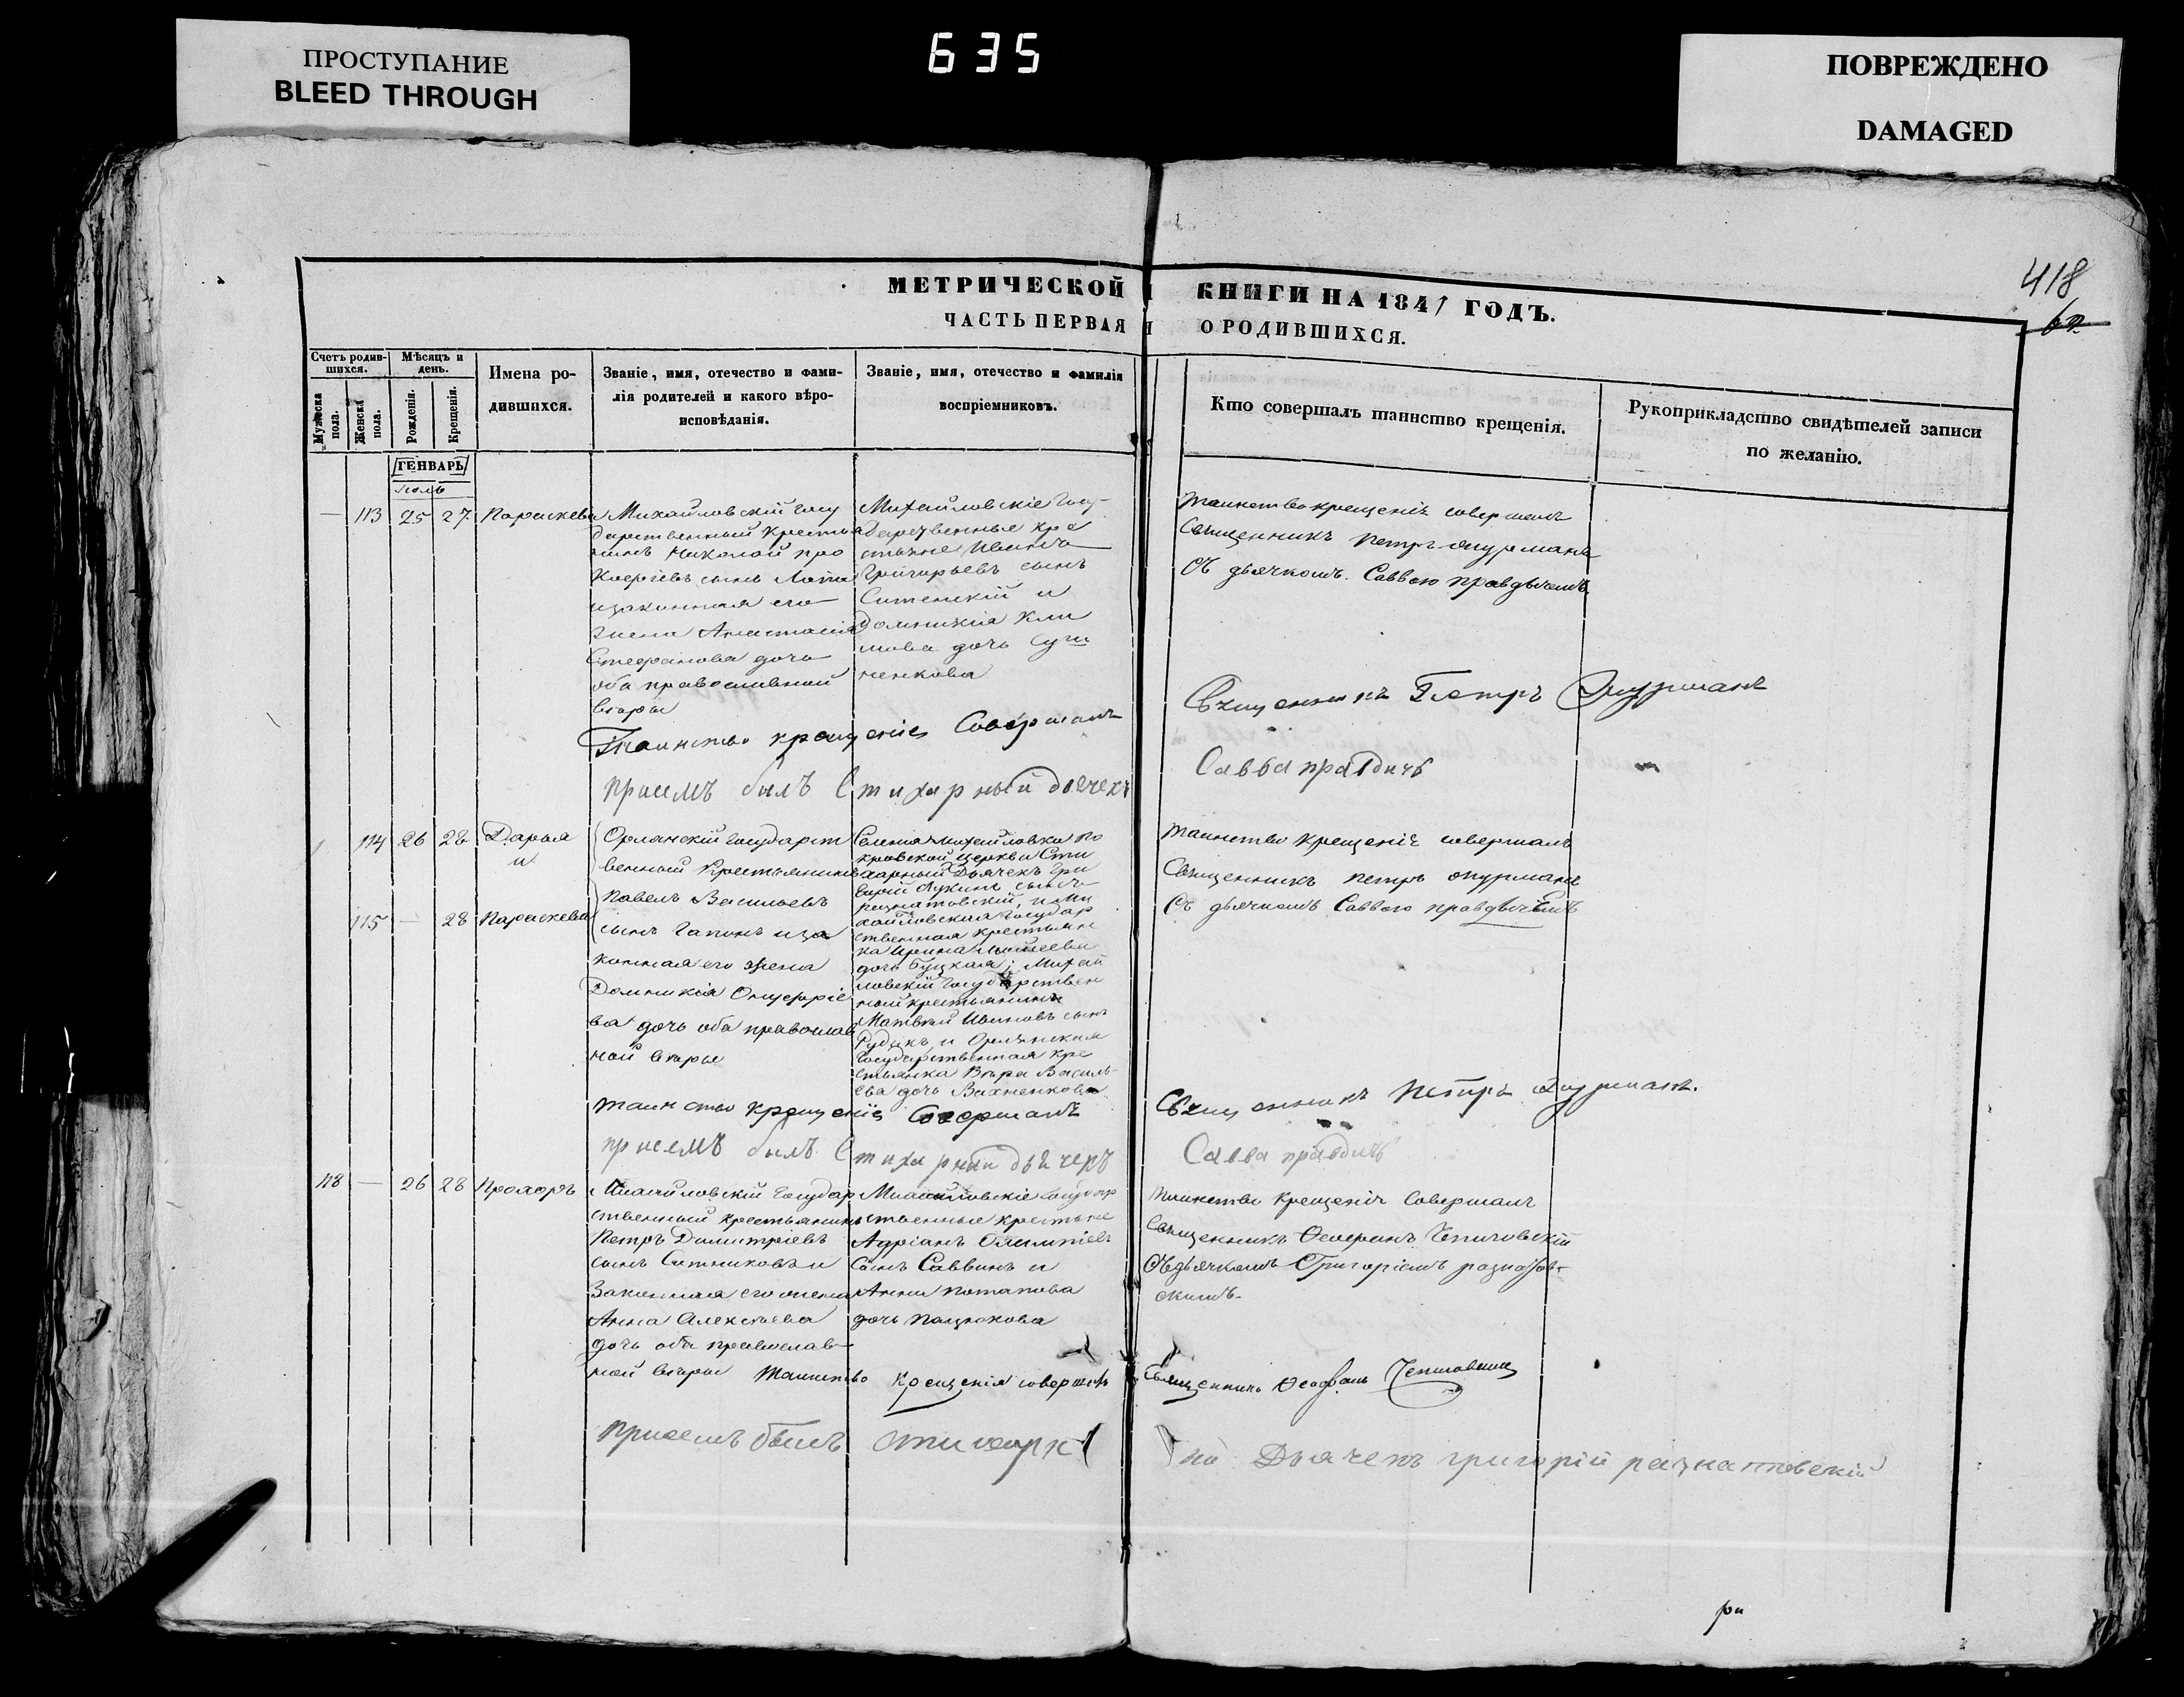 ПРОСТУПАНИЕ
BLEED THROUGH
635
ПОВРЕЖДЕНО
DAMAGED
418
МЕТРИЧЕСКОЙ КНИГИ НА 1847 ГОДЪ.
ЧАСТЬ ПЕРВАЯ О РОДИВШИХСЯ.
Счетъ родив-
шихся.
Мужеска
пола.
Женска
пола.
Мѣсяцъ и
день.
Рожденія.
Крещенія.
Имена ро-
дившихся.
Званіе, имя, отечество и фами-
лія родителей и какого вѣро-
исповѣданія.
Званіе, имя, отечество и фамилія
воспріемниковъ.
Кто совершалъ таинство крещенія.
Рукоприкладство свидѣтелей записи
по желанію.
ГЕНВАРЬ
— 113 25 27 Параскева
Михайловскій Госу
дарственный Крестья
нинъ Николай про
сынъ
изаконная его
жена Анастасія
Стефанова дочь
оба православной
вѣры
Михайловскіе Госу-
дарственные кре
стьяне
Григорьевъ сынъ
Ситенскій и
Домникія Кли
мова дочь
ненкова
таинство крещенія совершалъ
Священникъ петръ
Съ дьячкомъ Саввою правдичемъ
Таинство крещенія Совершалъ
Священникъ Петръ
присемъ былъ Стихарный дьячекъ
Савва правдичъ
114 26 28 Дарья
и
115 — 28 Параскева
Орлянскій Государст
венный Крестьянинъ
Павелъ Васильевъ
сынъ Гапонъ иза
конная его жена
Домникія Онуфріе
ва дочь оба православ
ной вѣры
Селенія Михайловки По
кровской церкви Сти
харный Дьячекъ Гри
горій Лукинъ сынъ
разнатовскій, и Ми
хайловская Государ
ственная крестьян
ка Ирина
дочь Буцкая; Михай
ловскій Государствен
ный крестьянинъ
Матвѣй Ивановъ сынъ
и Орлянская
Государственная кре
стьянка Вѣра Василь-
ева дочь Вахненкова
таинство крещенія совершалъ
Священникъ петръ
Съ дьячкомъ Саввою правдичемъ
таинство крещенія Совершалъ
Священникъ Петръ
присемъ былъ Стихарный дьячекъ
Савва правдичъ
118 — 26 28 Прохоръ
Михайловскій Государ
ственный крестьянинъ
Петръ Димитріевъ
сынъ Ситниковъ и
Законная его жена
Анна Алексѣева
дочь оба православ
ной вѣры
Михайловскіе Государ
ственные крестьяне
Адріанъ Олимпіевъ
Сынъ Саввинъ и
Анна Потапова
дочь
таинство крещенія Совершалъ
Священникъ Ѳеофанъ
Съ дьячкомъ Григоріемъ разнатов-
скимъ.
Таинство крещенія совершалъ
Священникъ Ѳеофанъ
присемъ былъ стихарн
ый Дьячекъ григорій разнатовскій